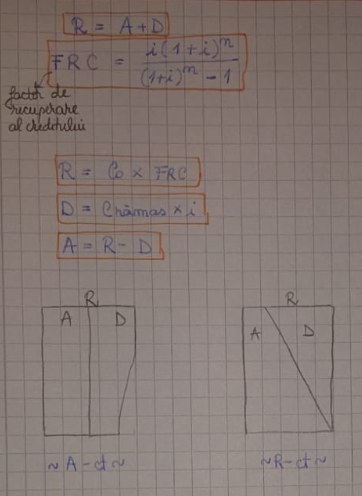 R = A + D
FRC = i(1+i)^n / (1+i)^n - 1
factor de
recuperare
al creditului
R = Co × FRC
D = Crămas × i
A = R - D
R
A D
~ A - ct ~
R
A D
~ R - ct ~